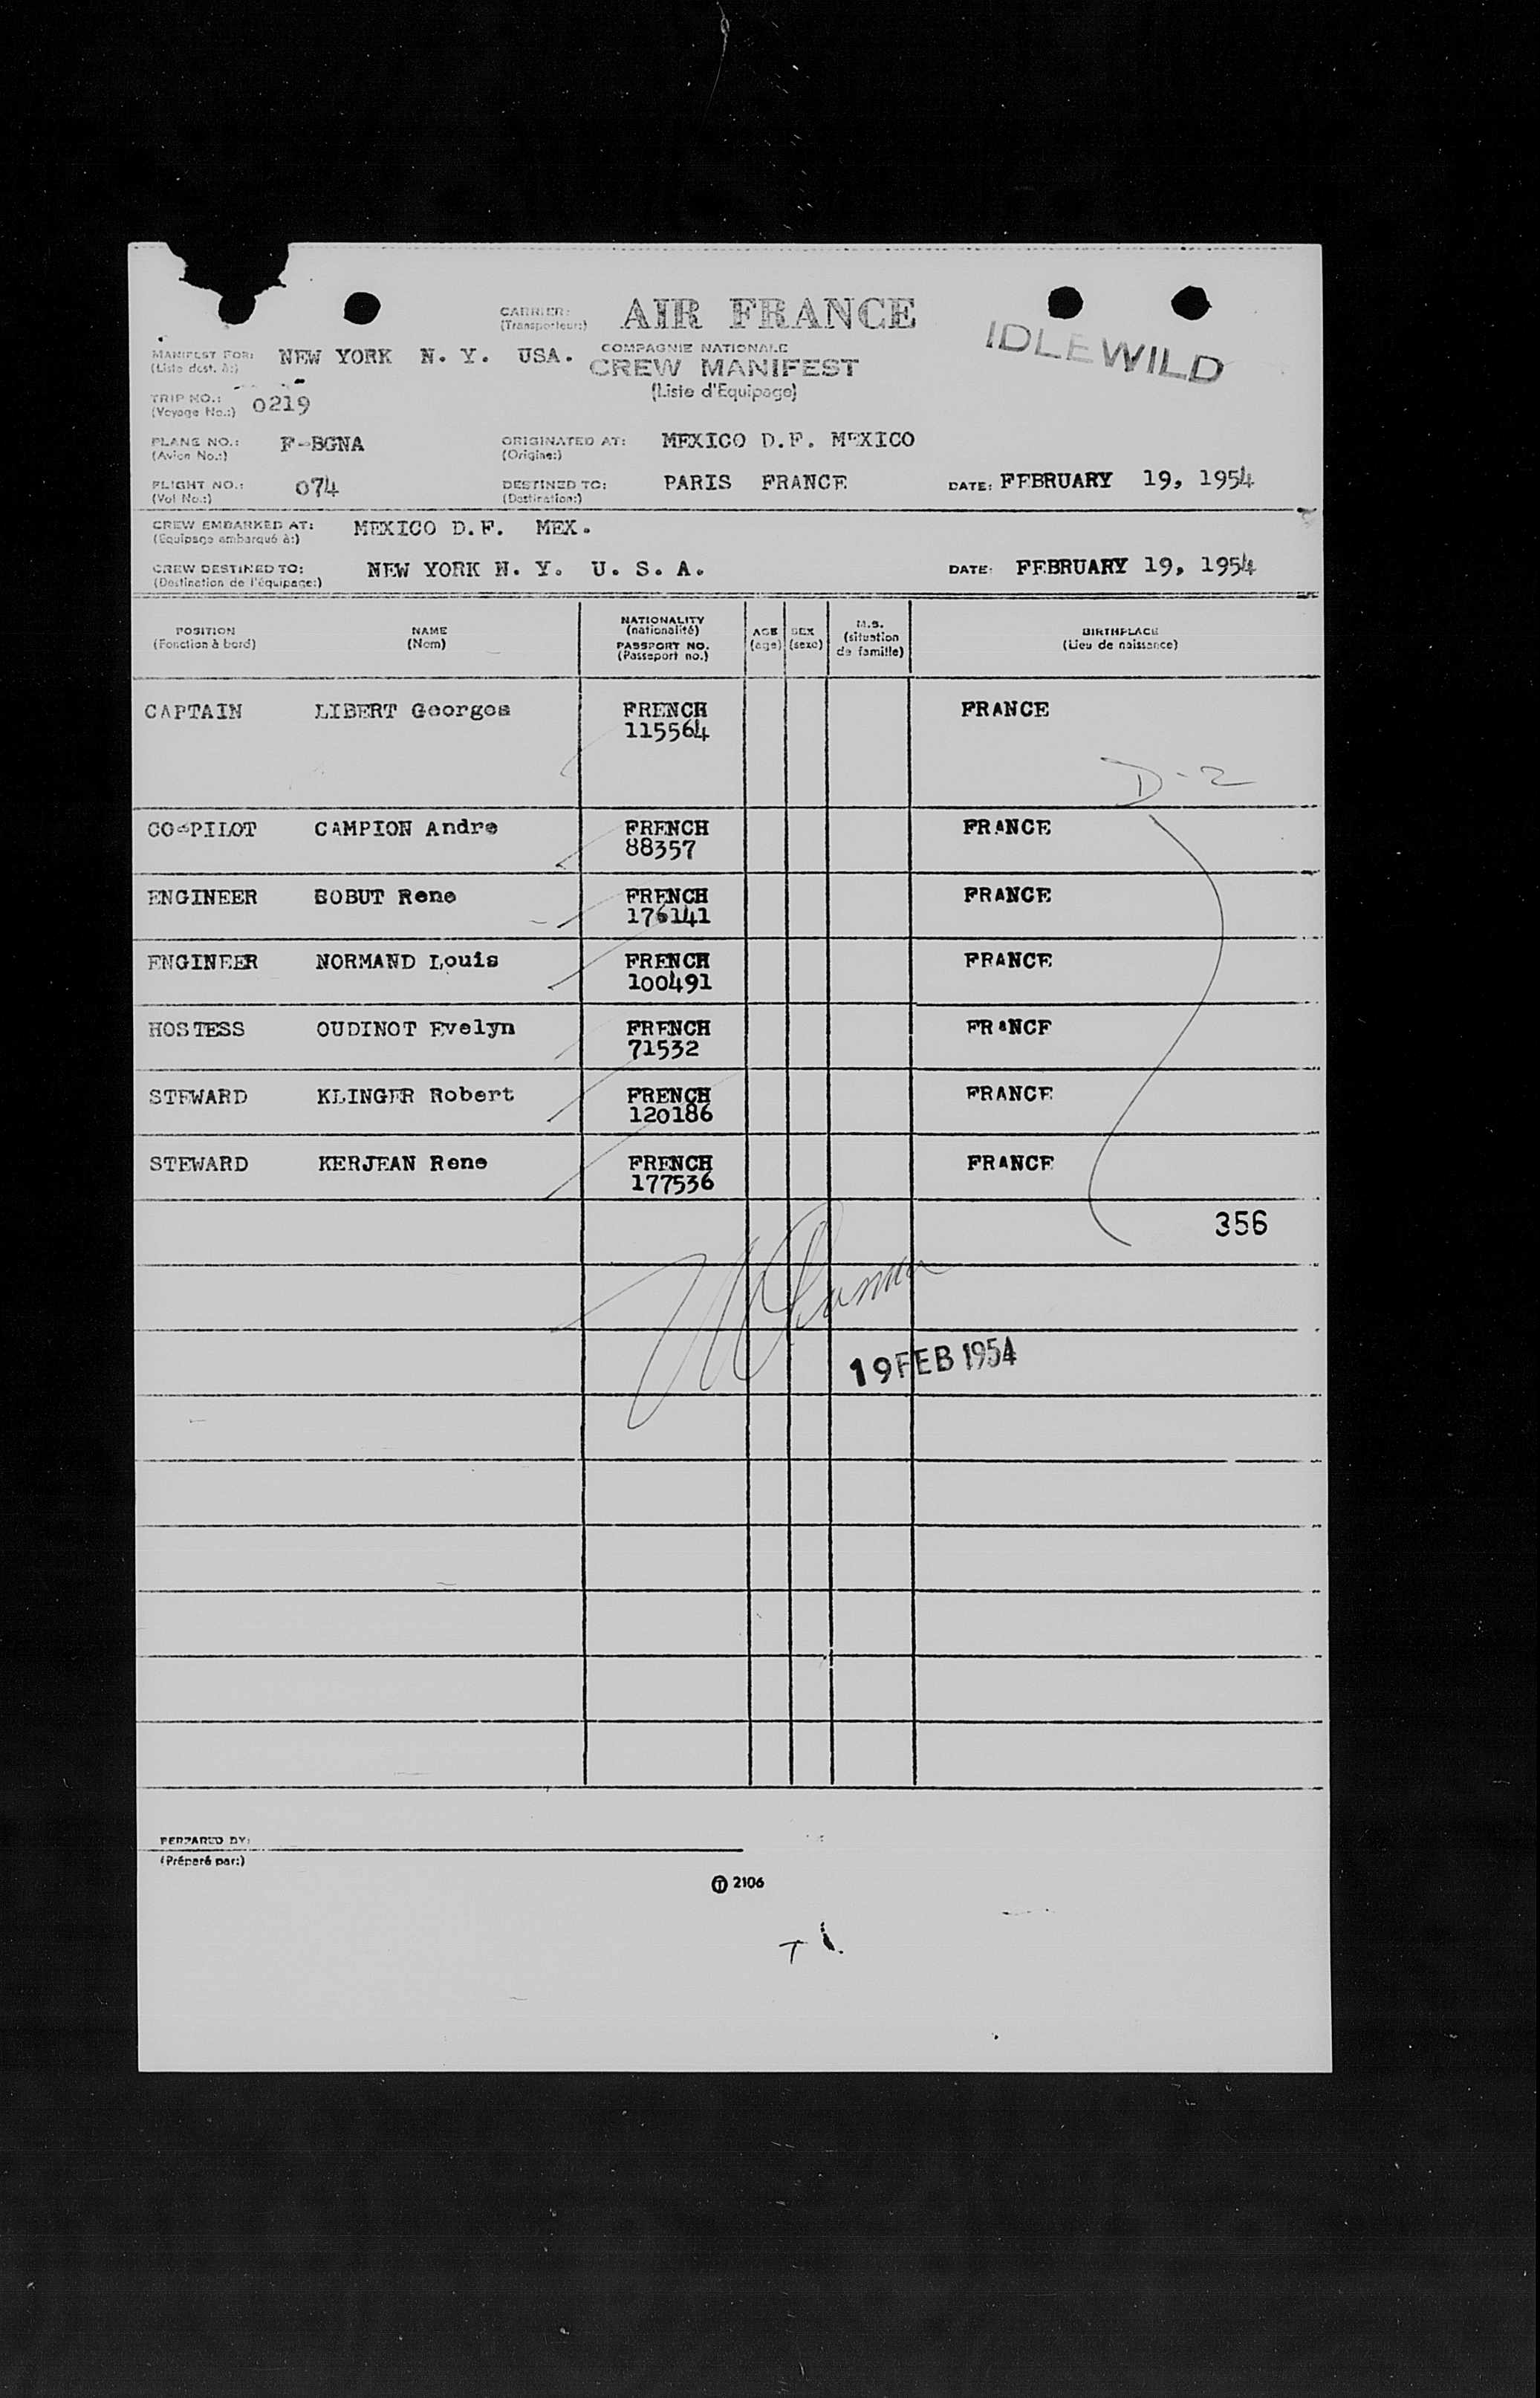 CARRIER: AIR FRANCE
(Transporteur:)
IDLEWILD
MANIFEST FOR: NEW YORK N. Y. USA. COMPAGNIE NATIONALE
(Liste dest. à:) CREW MANIFEST
(Liste d'Equipage)
TRIP NO.: 0219
(Voyage No.:)
PLANE NO.: F-BGNA ORIGINATED AT: MEXICO D.F. MEXICO
(Avion No.:) (Origine:)
FLIGHT NO.: 074 DESTINED TO: PARIS FRANCE DATE: FEBRUARY 19, 1954
(Vol No.:) (Destination:)
CREW EMBARKED AT: MEXICO D.F. MEX.
(Equipage embarqué à:)
CREW DESTINED TO: NEW YORK N. Y. U. S. A. DATE: FEBRUARY 19, 1954
(Destination de l'équipage:)
POSITION NAME NATIONALITY AGE SEX M.S. BIRTHPLACE
(Fonction à bord) (Nom) (nationalité) (age) (sexe) (situation de famille) (Lieu de naissance)
PASSPORT NO.
(Passeport no.)
CAPTAIN LIBERT Georges FRENCH FRANCE
115564
D-2
CO-PILOT CAMPION Andre FRENCH FRANCE
88357
ENGINEER BOBUT Rene FRENCH FRANCE
176141
ENGINEER NORMAND Louis FRENCH FRANCE
100491
HOSTESS OUDINOT Evelyn FRENCH FRANCE
71532
STEWARD KLINGER Robert FRENCH FRANCE
120186
STEWARD KERJEAN Rene FRENCH FRANCE
177536
356
19 FEB 1954
PERPARED BY:
(Préparé par:)
2106